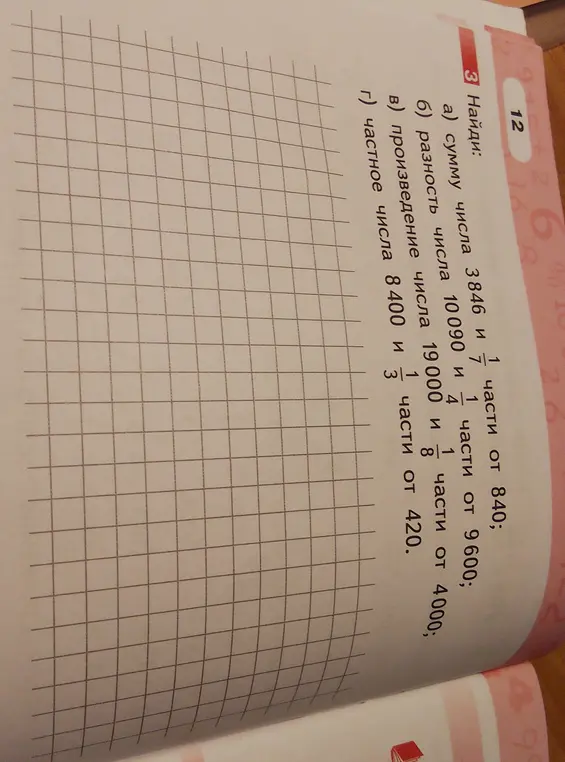 12
3 Найди:
а) сумму числа 3 846 и 1/7 части от 840;
б) разность числа 10 090 и 1/4 части от 9 600;
в) произведение числа 19 000 и 1/8 части от 4 000;
г) частное числа 8 400 и 1/3 части от 420.